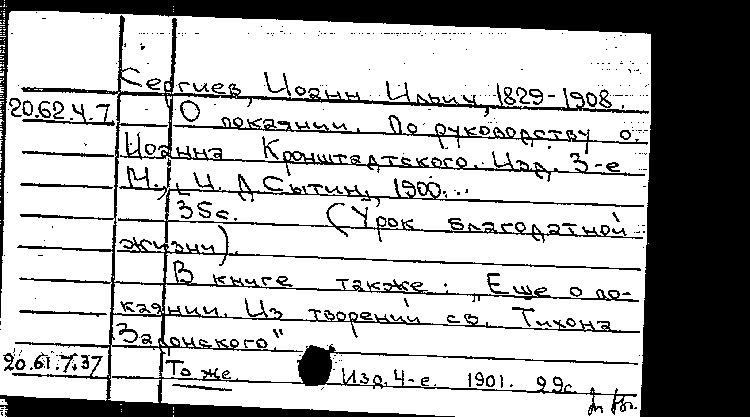 Сергиев, Иоанн Ильич, 1829-1908.
20.62.4.7. О покаянии. По руководству о.
Иоанна Кронштадтского. Изд. 3-е
М., И. Д. Сытин, 1900...
35с. (Урок благодатной
жизни).
В книге также: "Еще о по-
каянии. Из творений св. Тихона
Задонского."
20.61.7.37 То же Изд. 4-е. 1901. 29с.